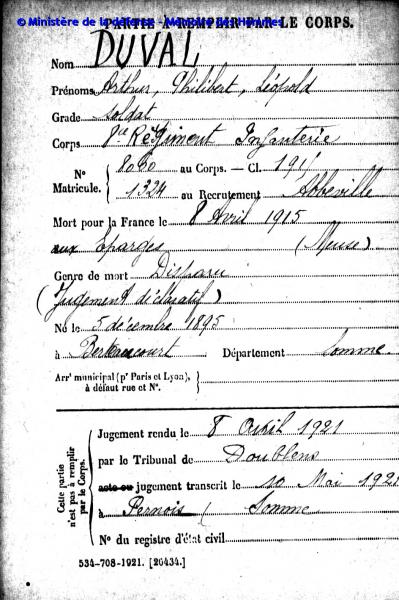 PARTIE A REMPLIR PAR LE CORPS.
© Ministère de la défense - Mémoire des Hommes
Nom DUVAL
Prénoms Arthur, Philibert, Léopold
Grade Soldat
Corps 8e Régiment Infanterie
N° Matricule. { 8060 au Corps. — Cl. 1915
1324 au Recrutement Abbeville
Mort pour la France le 8 Avril 1915
aux Eparges (Meuse)
Genre de mort Disparu
(Jugement déclaratif)
Né le 5 décembre 1895
à Berteaucourt Département Somme
Arrt municipal (pr Paris et Lyon), à défaut rue et N°.
Cette partie n'est pas à remplir par le Corps.
Jugement rendu le 8 Avril 1921
par le Tribunal de Doullens
acte ou jugement transcrit le 10 Mai 1921
à Pernois (Somme
N° du registre d'état civil
534-708-1921. [26434.]